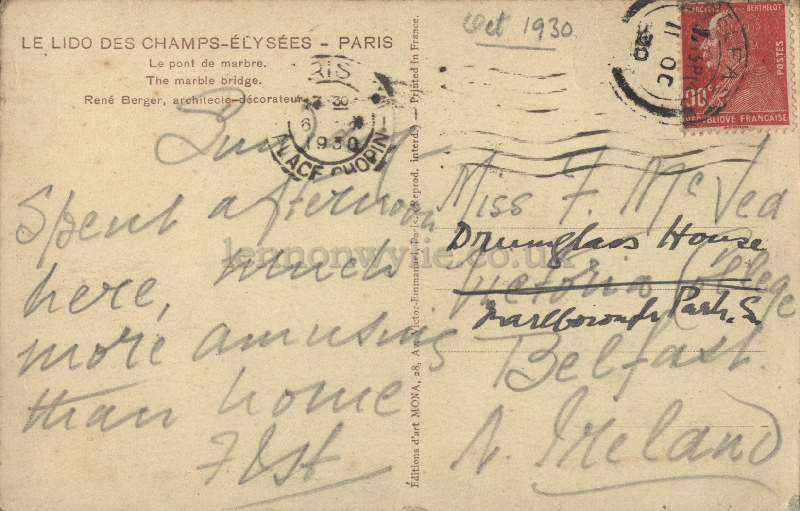 LE LIDO DES CHAMPS-ÉLYSÉES - PARIS
Le pont de marbre.
The marble bridge.
René Berger, architecte-décorateur
Oct 1930
PARIS
1930
PLACE CHOPIN
Sunday
Spent afternoon
here, which
more amusing
than home
Éditions d'art MONA, 28, Av. Victor-Emmanuel, Paris. (Reprod. interd.) — Printed in France.
11 OC
30
BERTHELOT
POSTES
90c
REPUBLIQUE FRANÇAISE
Miss F. McVea
Drumglass House
Victoria College
Marlborough Park. S.
Belfast.
N. Ireland
lennonwylie.co.uk